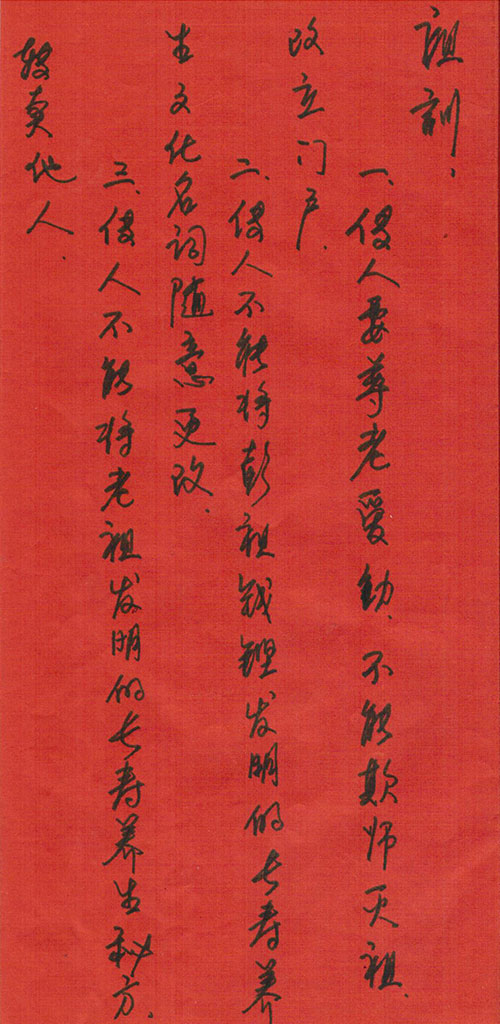 祖训、
一、传人要尊老爱幼、不能欺师灭祖、
改立门户.
二、传人不能将彭祖钱铿发明的长寿养
生文化名词随意更改、
三、传人不能将老祖发明的长寿养生秘方、
转卖他人.